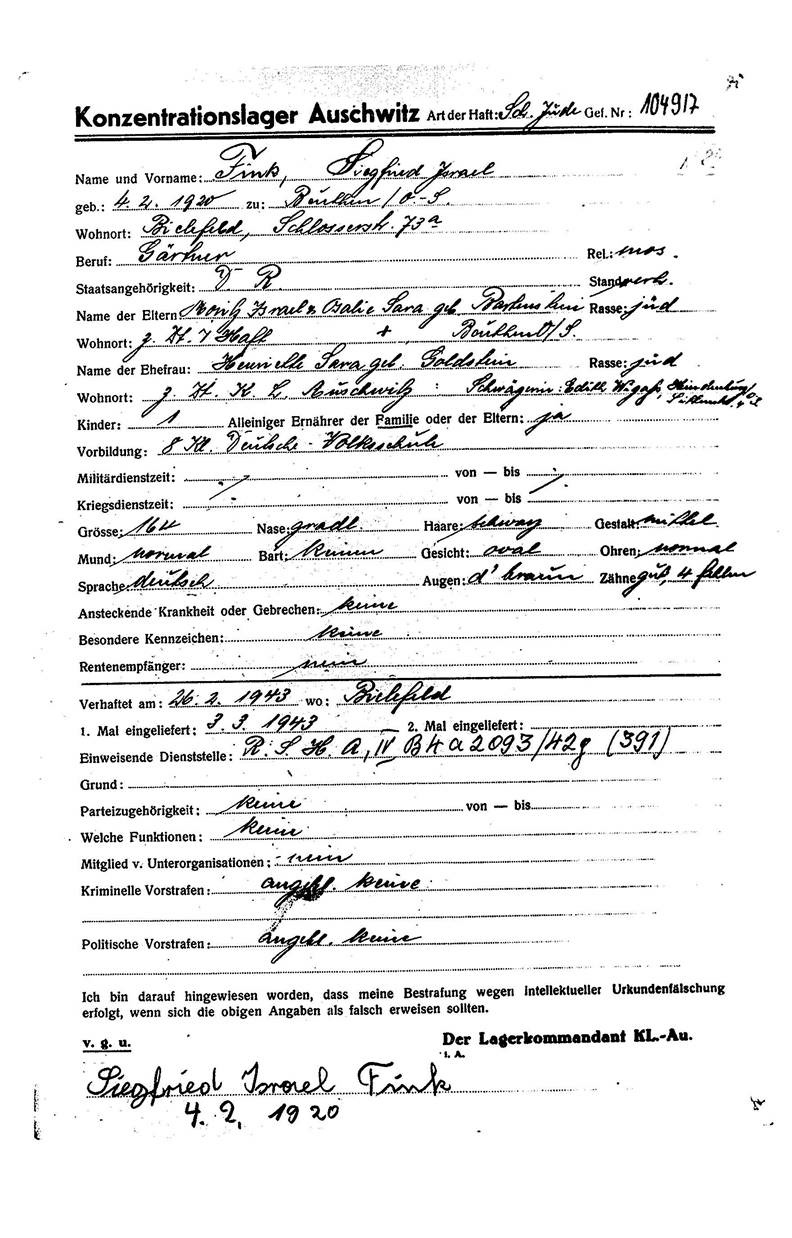 Konzentrationslager Auschwitz Art der Haft: Sch. Jude Gef. Nr: 104917
Name und Vorname: Fink, Siegfried Israel
geb.: 4. 2. 1920 zu: Beuthen / O-S.
Wohnort: Bielefeld, Schlosserstr. 73a
Beruf: Gärtner Rel.: mos.
Staatsangehörigkeit: D R Stand verh.
Name der Eltern: Moritz Israel u. Rasse: jüd
Sara geb.
Wohnort: z. Zt. Haft + Beuthen O/S.
Name der Ehefrau: Henriette Sara geb. Goldstein Rasse: jüd
Wohnort: z. Zt. K. L. Auschwitz : Schwägerin: Edith Hindenburg/
Kinder: 1 Alleiniger Ernährer der Familie oder der Eltern: ja
Vorbildung: 8 Kl. Deutsche - Volksschule
Militärdienstzeit: von — bis
Kriegsdienstzeit: von — bis
Grösse: 164 Nase: gradl. Haare: schwarz Gestalt: mittel.
Mund: normal Bart: keinen Gesicht: oval Ohren: normal
Sprache: deutsch Augen: d' braun Zähne gut, 4 fehlen
Ansteckende Krankheit oder Gebrechen: keine
Besondere Kennzeichen: keine
Rentenempfänger: nein
Verhaftet am: 26. 2. 1943 wo: Bielefeld
1. Mal eingeliefert: 3. 3. 1943 2. Mal eingeliefert:
Einweisende Dienststelle: R. S. H. A, IV B4a 2093/42g (391)
Grund:
Parteizugehörigkeit: keine von — bis
Welche Funktionen: keine
Mitglied v. Unterorganisationen: nein
Kriminelle Vorstrafen: angebl. keine
Politische Vorstrafen: angebl. keine
Ich bin darauf hingewiesen worden, dass meine Bestrafung wegen intellektueller Urkundenfälschung
erfolgt, wenn sich die obigen Angaben als falsch erweisen sollten.
v. g. u. Der Lagerkommandant KL.-Au.
I. A.
Siegfried Israel Fink
4. 2. 1920